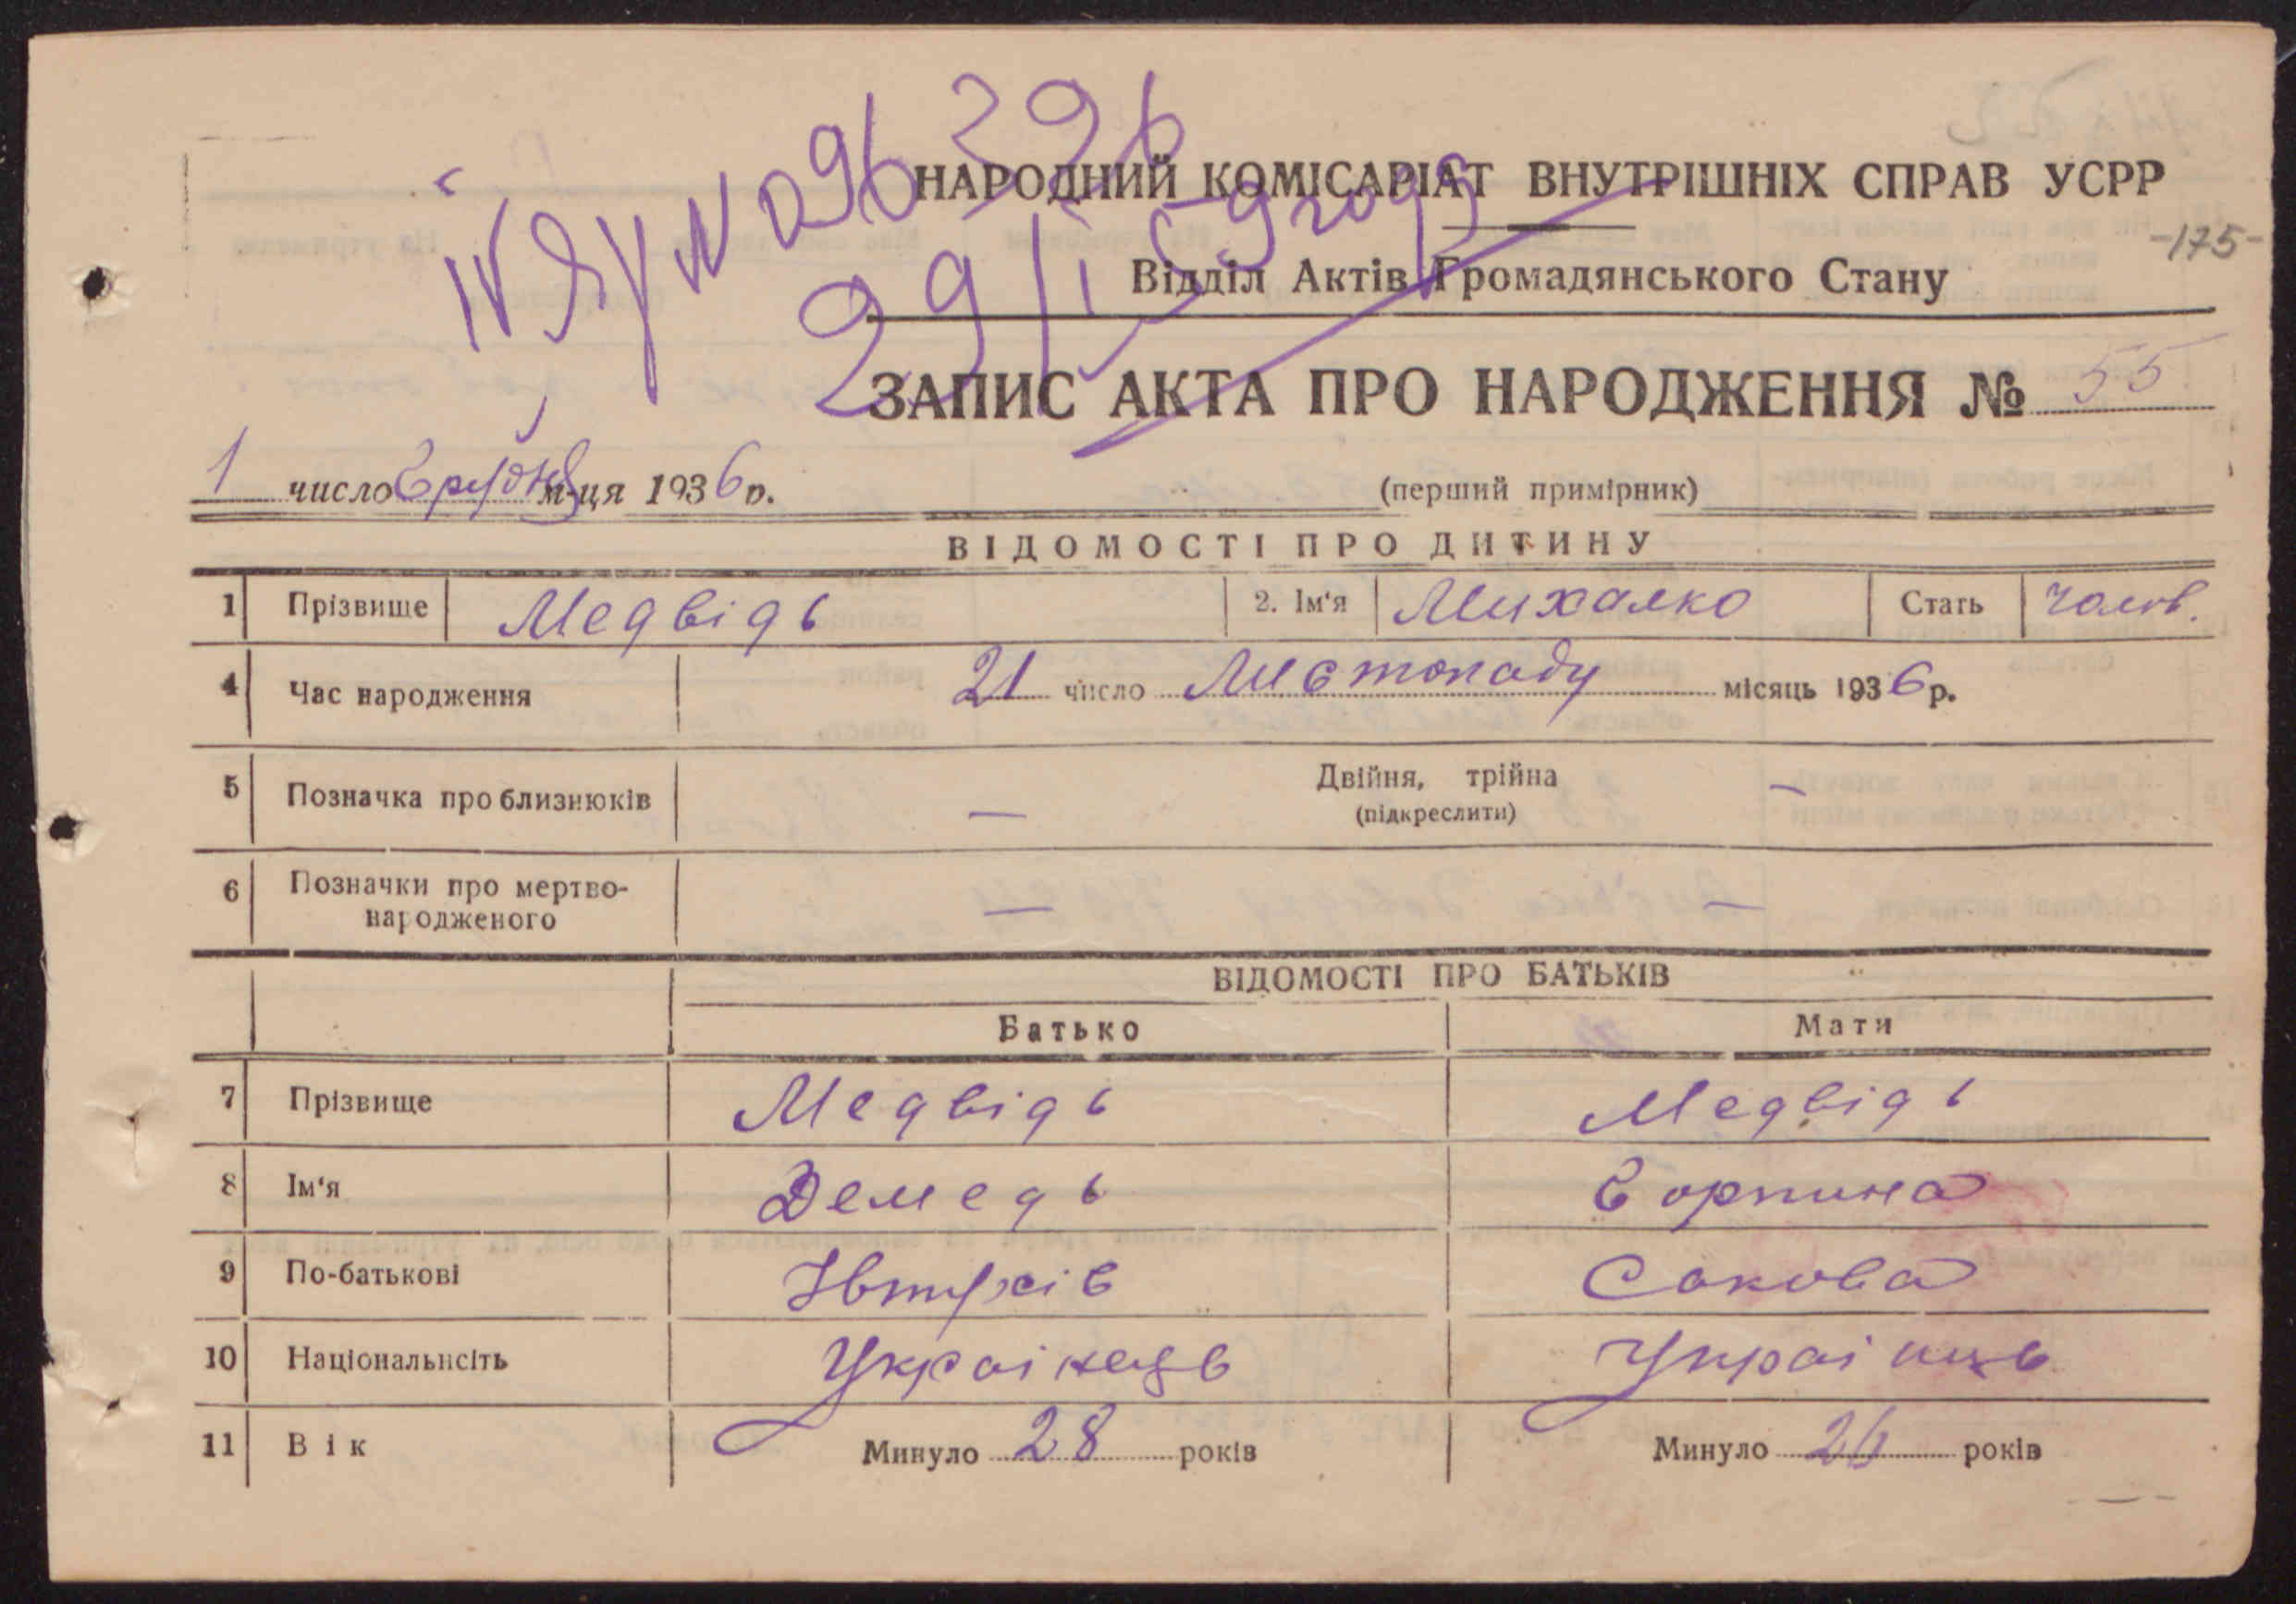 НАРОДНИЙ КОМІСАРІАТ ВНУТРІШНІХ СПРАВ УСРР
-175-
Відділ Актів Громадянського Стану
ЗАПИС АКТА ПРО НАРОДЖЕННЯ № 55
1 число Грудня м-ця 1936 р.
(перший примірник)
ВІДОМОСТІ ПРО ДИТИНУ
1 Прізвище Медвідь 2. Ім'я Михалко Стать чолов.
4 Час народження 21 число Листопаду місяць 1936 р.
5 Позначка про близнюків — Двійня, трійна —
(підкреслити)
6 Позначки про мертво-
народженого — —
ВІДОМОСТІ ПРО БАТЬКІВ
Батько Мати
7 Прізвище Медвідь Медвідь
8 Ім'я Демедь Горпина
9 По-батькові
10 Національнсіть Українець Українць
11 Вік Минуло 28 років Минуло 26 років